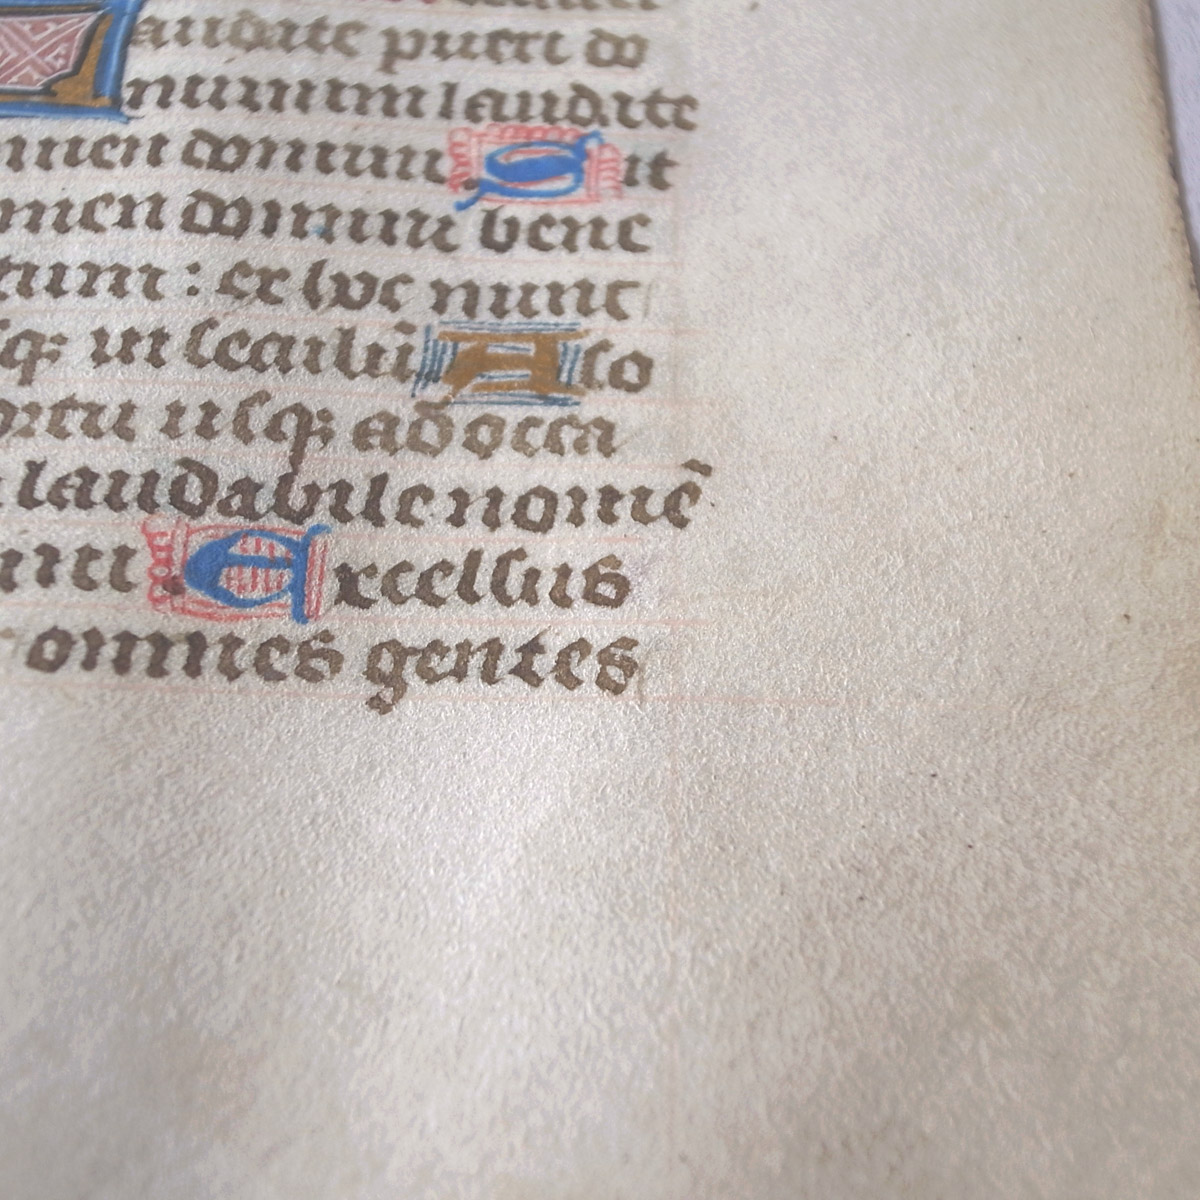 audate pueri do
minum laudate
men domini. Sit
men domini bene
tum : ex hoc nunc
sqꝫ in seculū A so
ortu usqꝫ ad occa
laudabile nomē
ini. Excelsus
omnes gentes